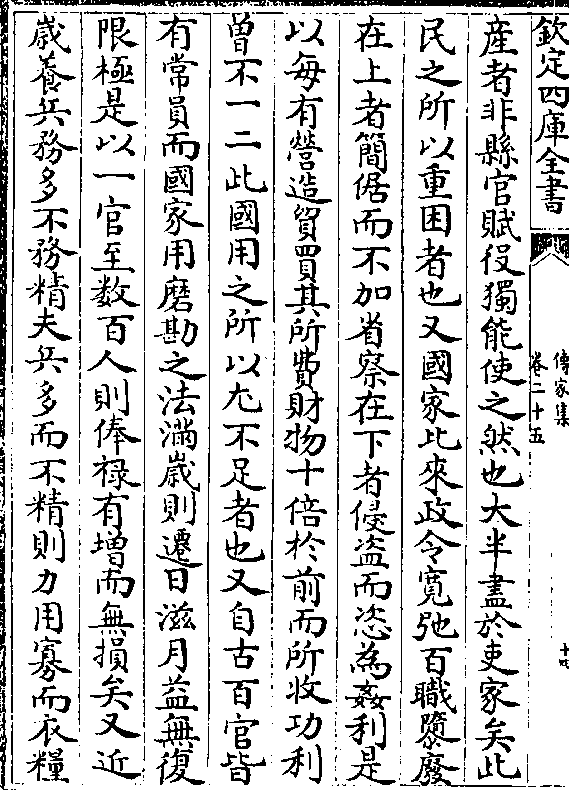 欽定四庫全書
傳家集
卷二十五
産者非縣官賦役獨能使之然也大半盡於吏家矣此
民之所以重困者也又國家比來政令寛弛百職隳廢
在上者簡倨而不加省察在下者侵盗而恣為姦利是
以毎有營造貿買其所費財物十倍於前而所收功利
曽不一二此國用之所以尤不足者也又自古百官皆
有常員而國家用磨勘之法滿歳則遷日滋月益無復
限極是以一官至數百人則俸禄有增而無損矣又近
歳養兵務多不務精夫兵多而不精則力用寡而衣糧